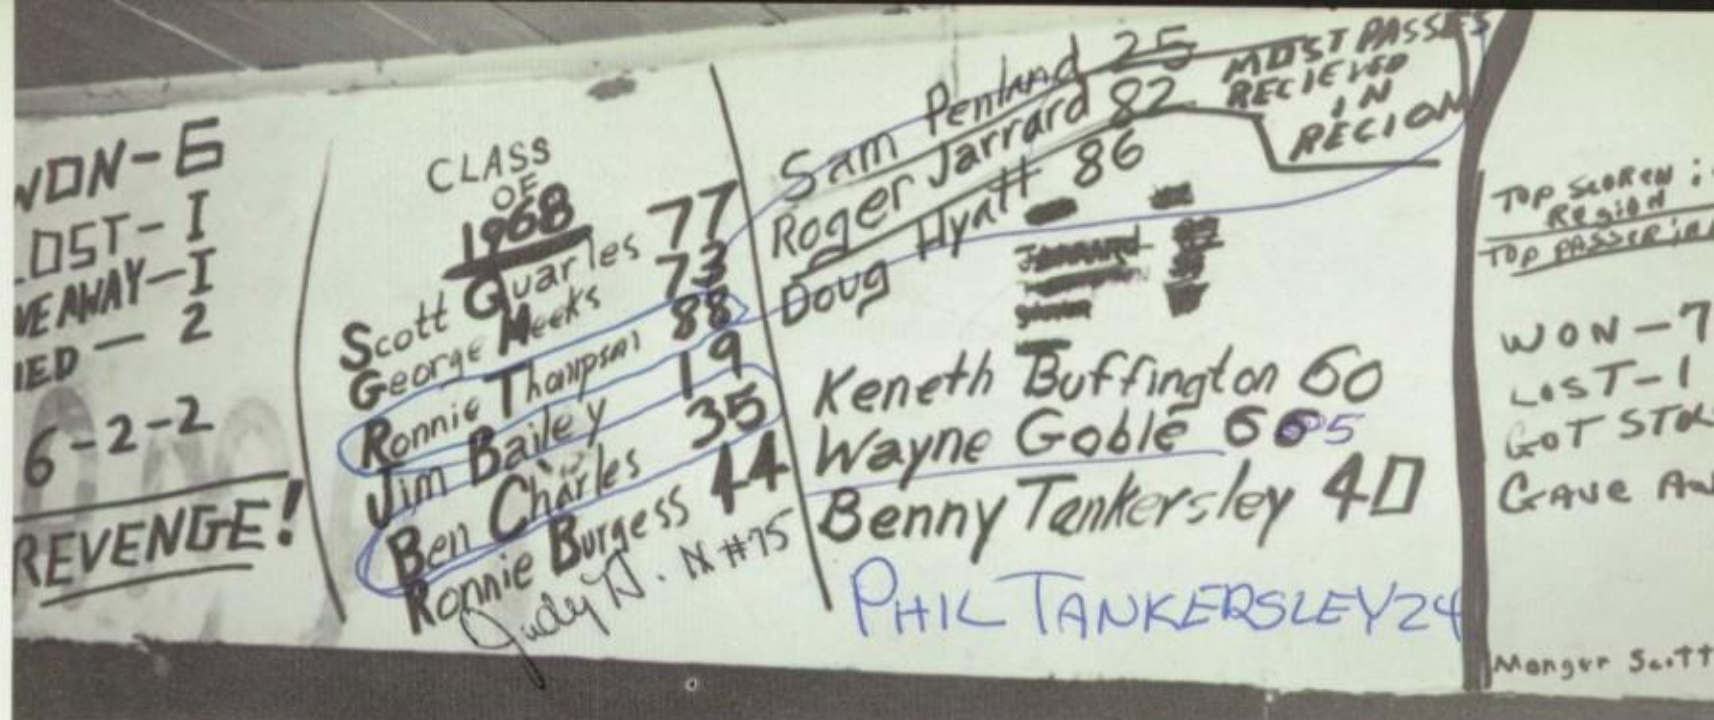 WON-6
LOST-I
VE AWAY-I
IED - 2
6-2-2
REVENGE!
CLASS
OF
1968
Scott Quarles 77
George Meeks 73
Ronnie Thompson 88
Jim Bailey 19
Ben Charles 35
Ronnie Burgess 44
Judy N. #75
Sam Penland 25
Roger Jarrard 82
Doug Hyatt 86
MOST PASSES
RECIEVED
IN
RECION
JARRARD 82
Keneth Buffington 60
Wayne Goble 6 5
Benny Tankersley 40
PHIL TANKERSLEY 24
TOP SCORER i
REGION
TOP PASSER iN
WON-7
LOST-1
GOT STOL
GAVE AW
Manger Scott